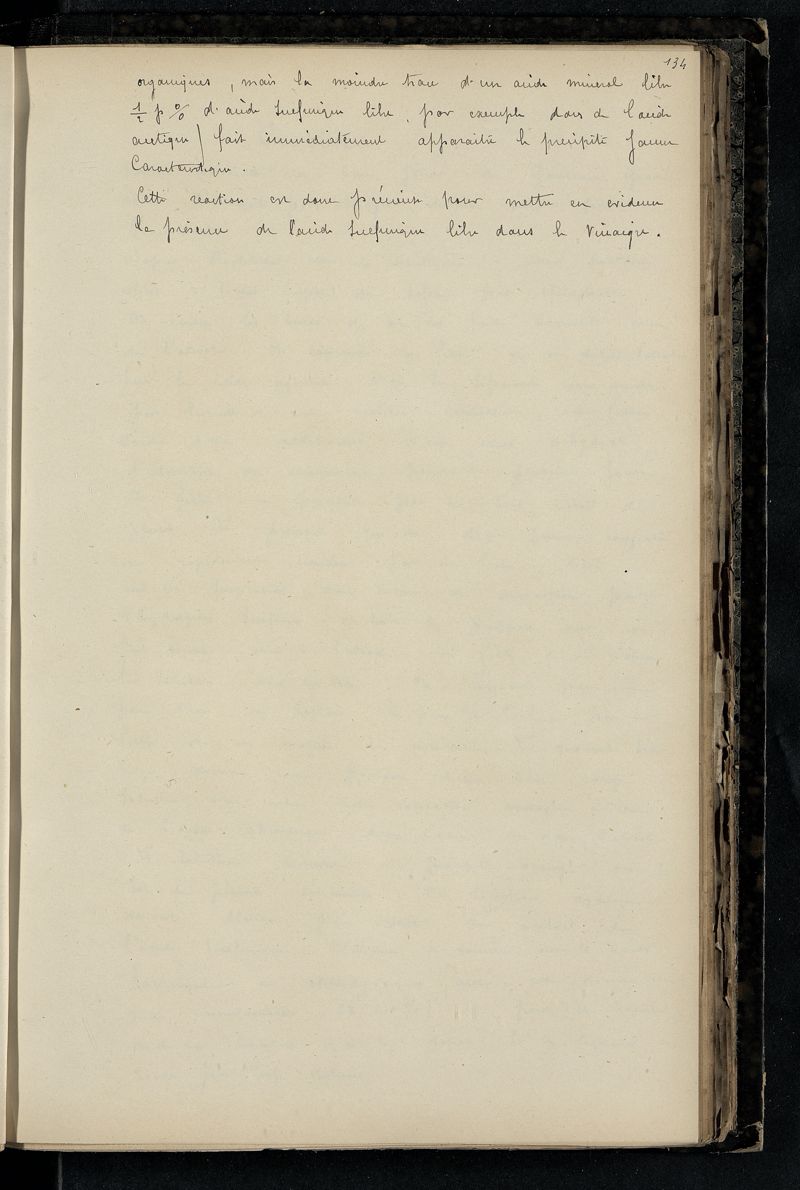 134
organiques, mais la moindre trace d'un acide mineral libre
1/2 p % d'acide sulfurique libre, par exemple dans de l'acide
acetique) fait immédiatement apparaitre le precipité jaune
Caracteristique.
Cette reaction est donc précieuse pour mettre en evidence
la présence de l'acide sulfurique libre dans le Vinaigre.